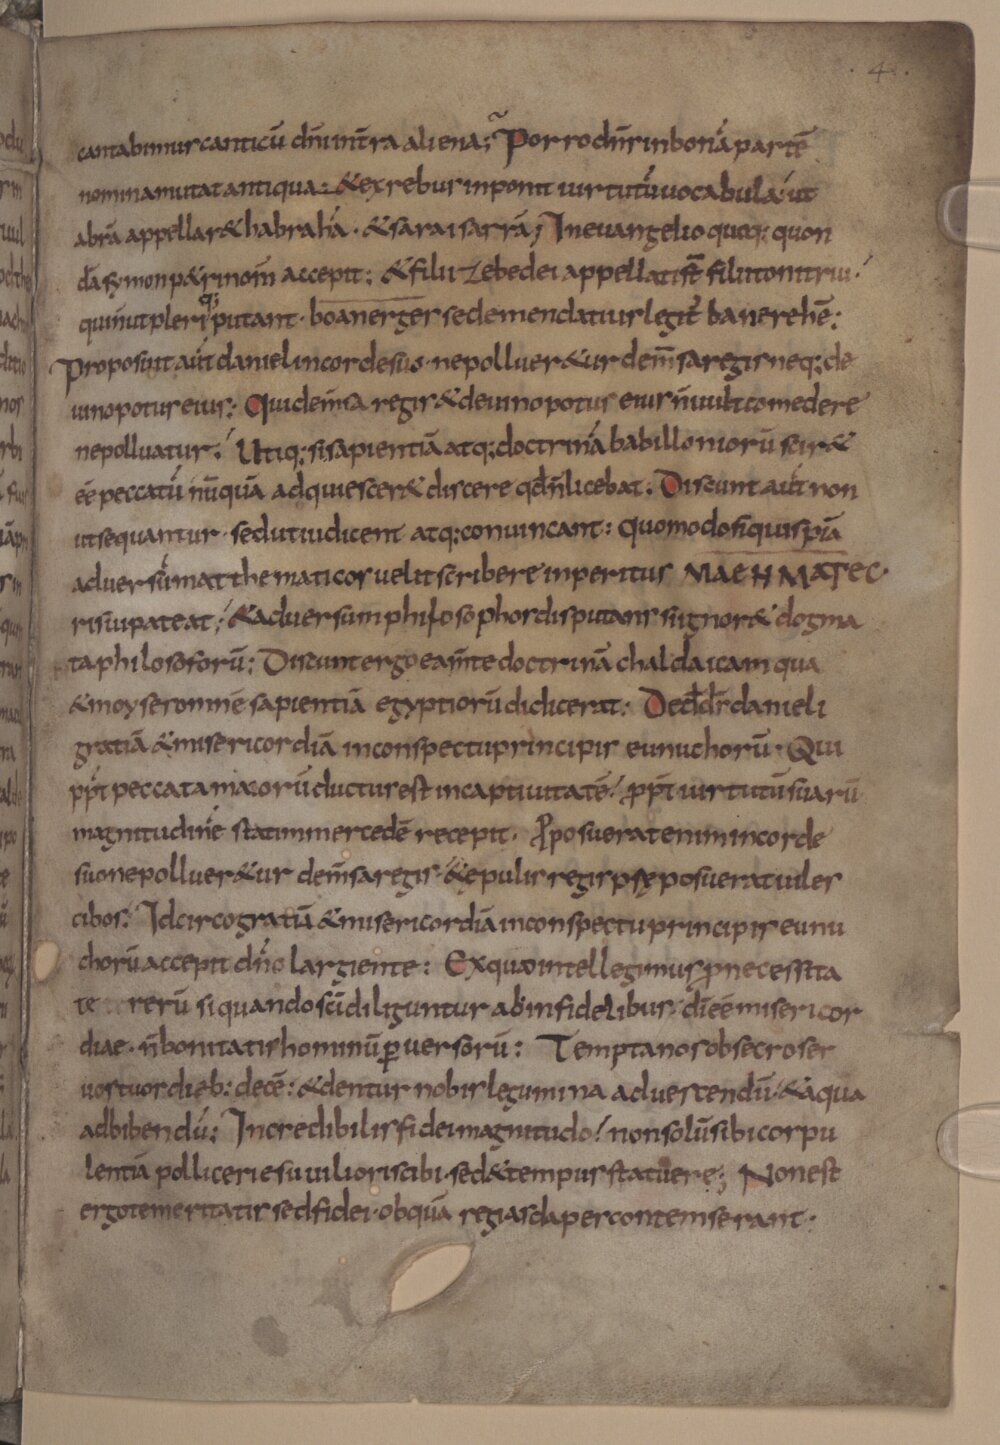 4
cantabimus canticū dn̄i in t̄ra aliena; Porro dn̄s in bonā partē
nomina mutat antiqua: & ex rebus inponit uirtutū uocabula; ut
abrā appellar& habrahā. & sarai sarrā; In euangelio quoq; quon
dā symon p&ri nom̄ accepit: & filii zebedei appellati st̄ filii tonitrui.
qui n̄ ut pleriq; putant. boanerges sed emendatius legit̄ banerehē:
Proposuit aut̄ daniel in corde suo. ne polluer&ur de m̄sa regis neq; de
uino potus eius: Qui de m̄sa regis & de uino potus eius n̄ uult comedere
ne polluatur. Utiq; si sapientiā atq; doctrinā babilloniorū scir&
eē peccatū nūquā adquiescer& discere qd̄ n̄ licebat: Discunt aut̄ non
ut sequantur. sed ut iudicent atq; conuincant: quomodo si quispiā
aduersū mathematicos uelit scribere inperitus MAEHMATEC
risui pateat; & aduersum philosophos disputans si ignor& dogma
ta philosoforū: Discunt ergo ea m̄te doctrinā chaldaicam qua
& moyses omnē sapientiā egyptiorū didicerat: Ded̄ d̄s danieli
gratiā & misericordiā in conspectu principis eunuchorū. Qui
ppt̄ peccata maiorū ductus est in captiuitatē. ppt̄ uirtutū suarū
magnitudinē statim mercedē recepit. Proposuerat enim in corde
suo ne polluer&ur de m̄sa regis. & epulis regis p̄posuerat uiles
cibos: Idcirco gratiā & misericordiā in conspectu principis eunu
chorū accepit dn̄o largiente: Ex quo intellegimus p necessita
te rerū si quando sc̄i diliguntur ab infidelibus. dī eē misericor
diae. n̄ bonitatis hominū p̱uersorū: Tempta nos obsecro ser
uos tuos dieb: decē: & dentur nobis legumina ad uescendū. & aqua
ad bibendū: Incredibilis fidei magnitudo. non solū sibi corpu
lentiā polliceri esu uilioris cibi. sed & tempus statuere; Non est
ergo temeritatis sed fidei. ob quā regias dapes contemserant.